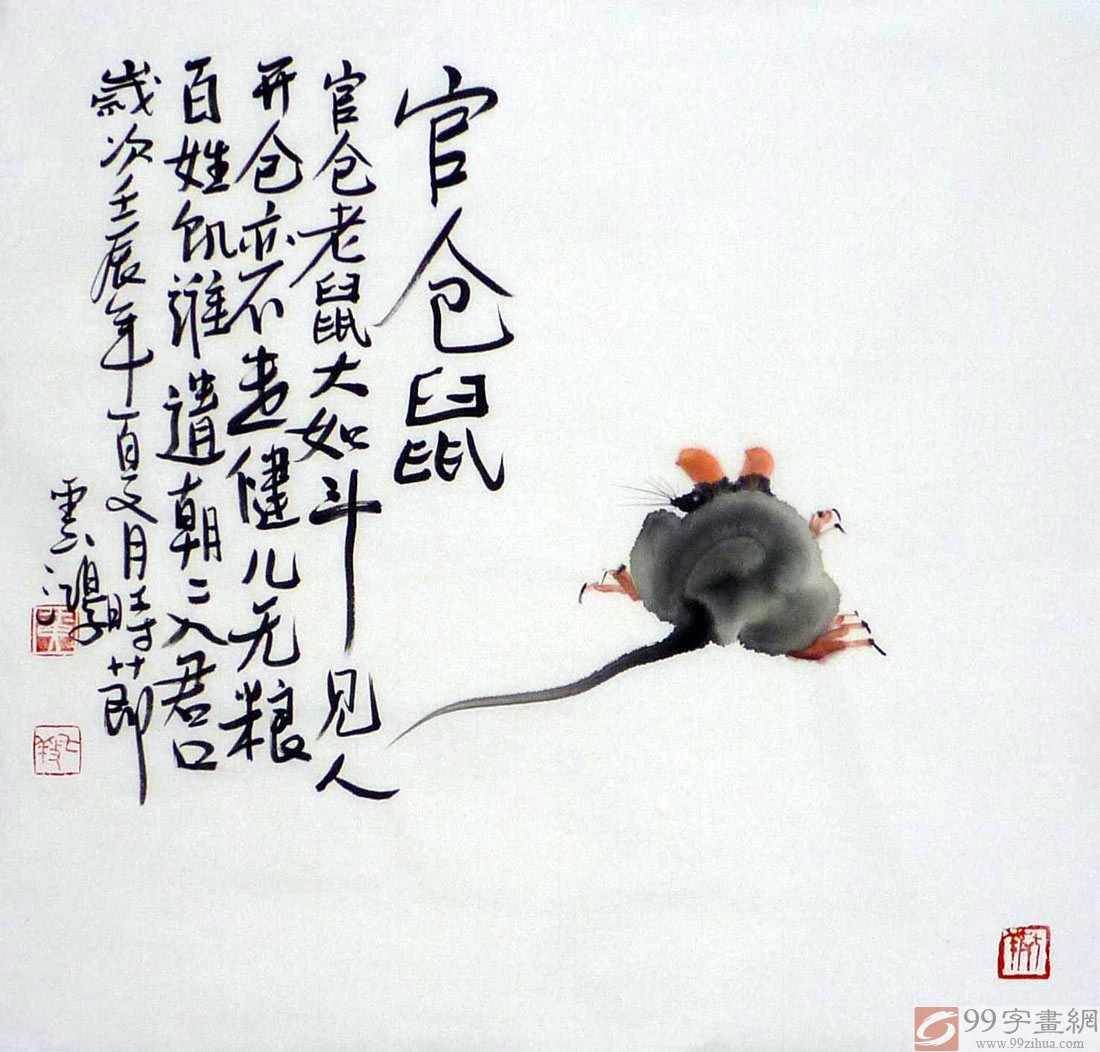 官仓鼠
官仓老鼠大如斗见人
开仓亦不走健儿无粮
百姓飢谁遣朝〻入君口
歲次壬辰年夏月時節
雲鴻
99字畫網
www.99zihua.com